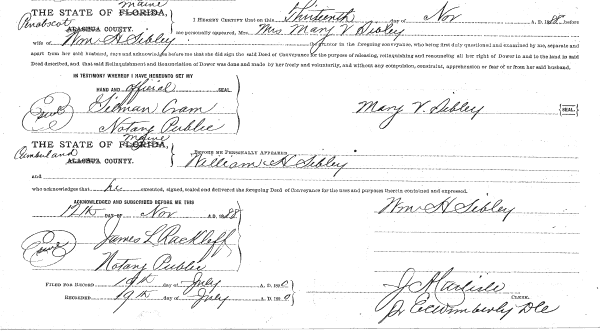 Maine
THE STATE OF FLORIDA,
Penobscot
ALACHUA COUNTY.
I HEREBY CERTIFY That on this Thirteenth day of Nov A.D. 188
personally appeared, Mrs. Mary V Sibley
wife of Wm H Sibley the grantor in the foregoing conveyance, who being first duly questioned and examined by me, separate and
apart from her said husband, and acknowledged before me that she did sign the said Deed of Conveyance for the purpose of releasing, relinquishing and renouncing all her right of Dower in and to the land in said
Deed described, and that said Relinquishment and Renunciation of Dower was made by her freely and voluntarily, and without any compulsion, constraint, apprehension or fear of or from her said husband.
IN TESTIMONY WHEREOF I HAVE HEREUNTO SET MY
HAND AND official SEAL.
Seal
Cram
Notary Public
Mary V. Sibley
SEAL
Maine
THE STATE OF FLORIDA,
Cumberland
ALACHUA COUNTY.
BEFORE ME PERSONALLY APPEARED
William H Sibley
and
who acknowledges that he executed, signed, sealed and delivered the foregoing Deed of Conveyance for the uses and purposes therein contained and expressed.
ACKNOWLEDGED AND SUBSCRIBED BEFORE ME THIS
12th DAY OF Nov A.D. 1888
Wm H Sibley
Seal
James L Rackleff
Notary Public
FILED FOR RECORD 19th day of July A.D. 1890
RECORDED 19th day of July A.D. 1890
J A Carlisle
CLERK.
Wimberly DC